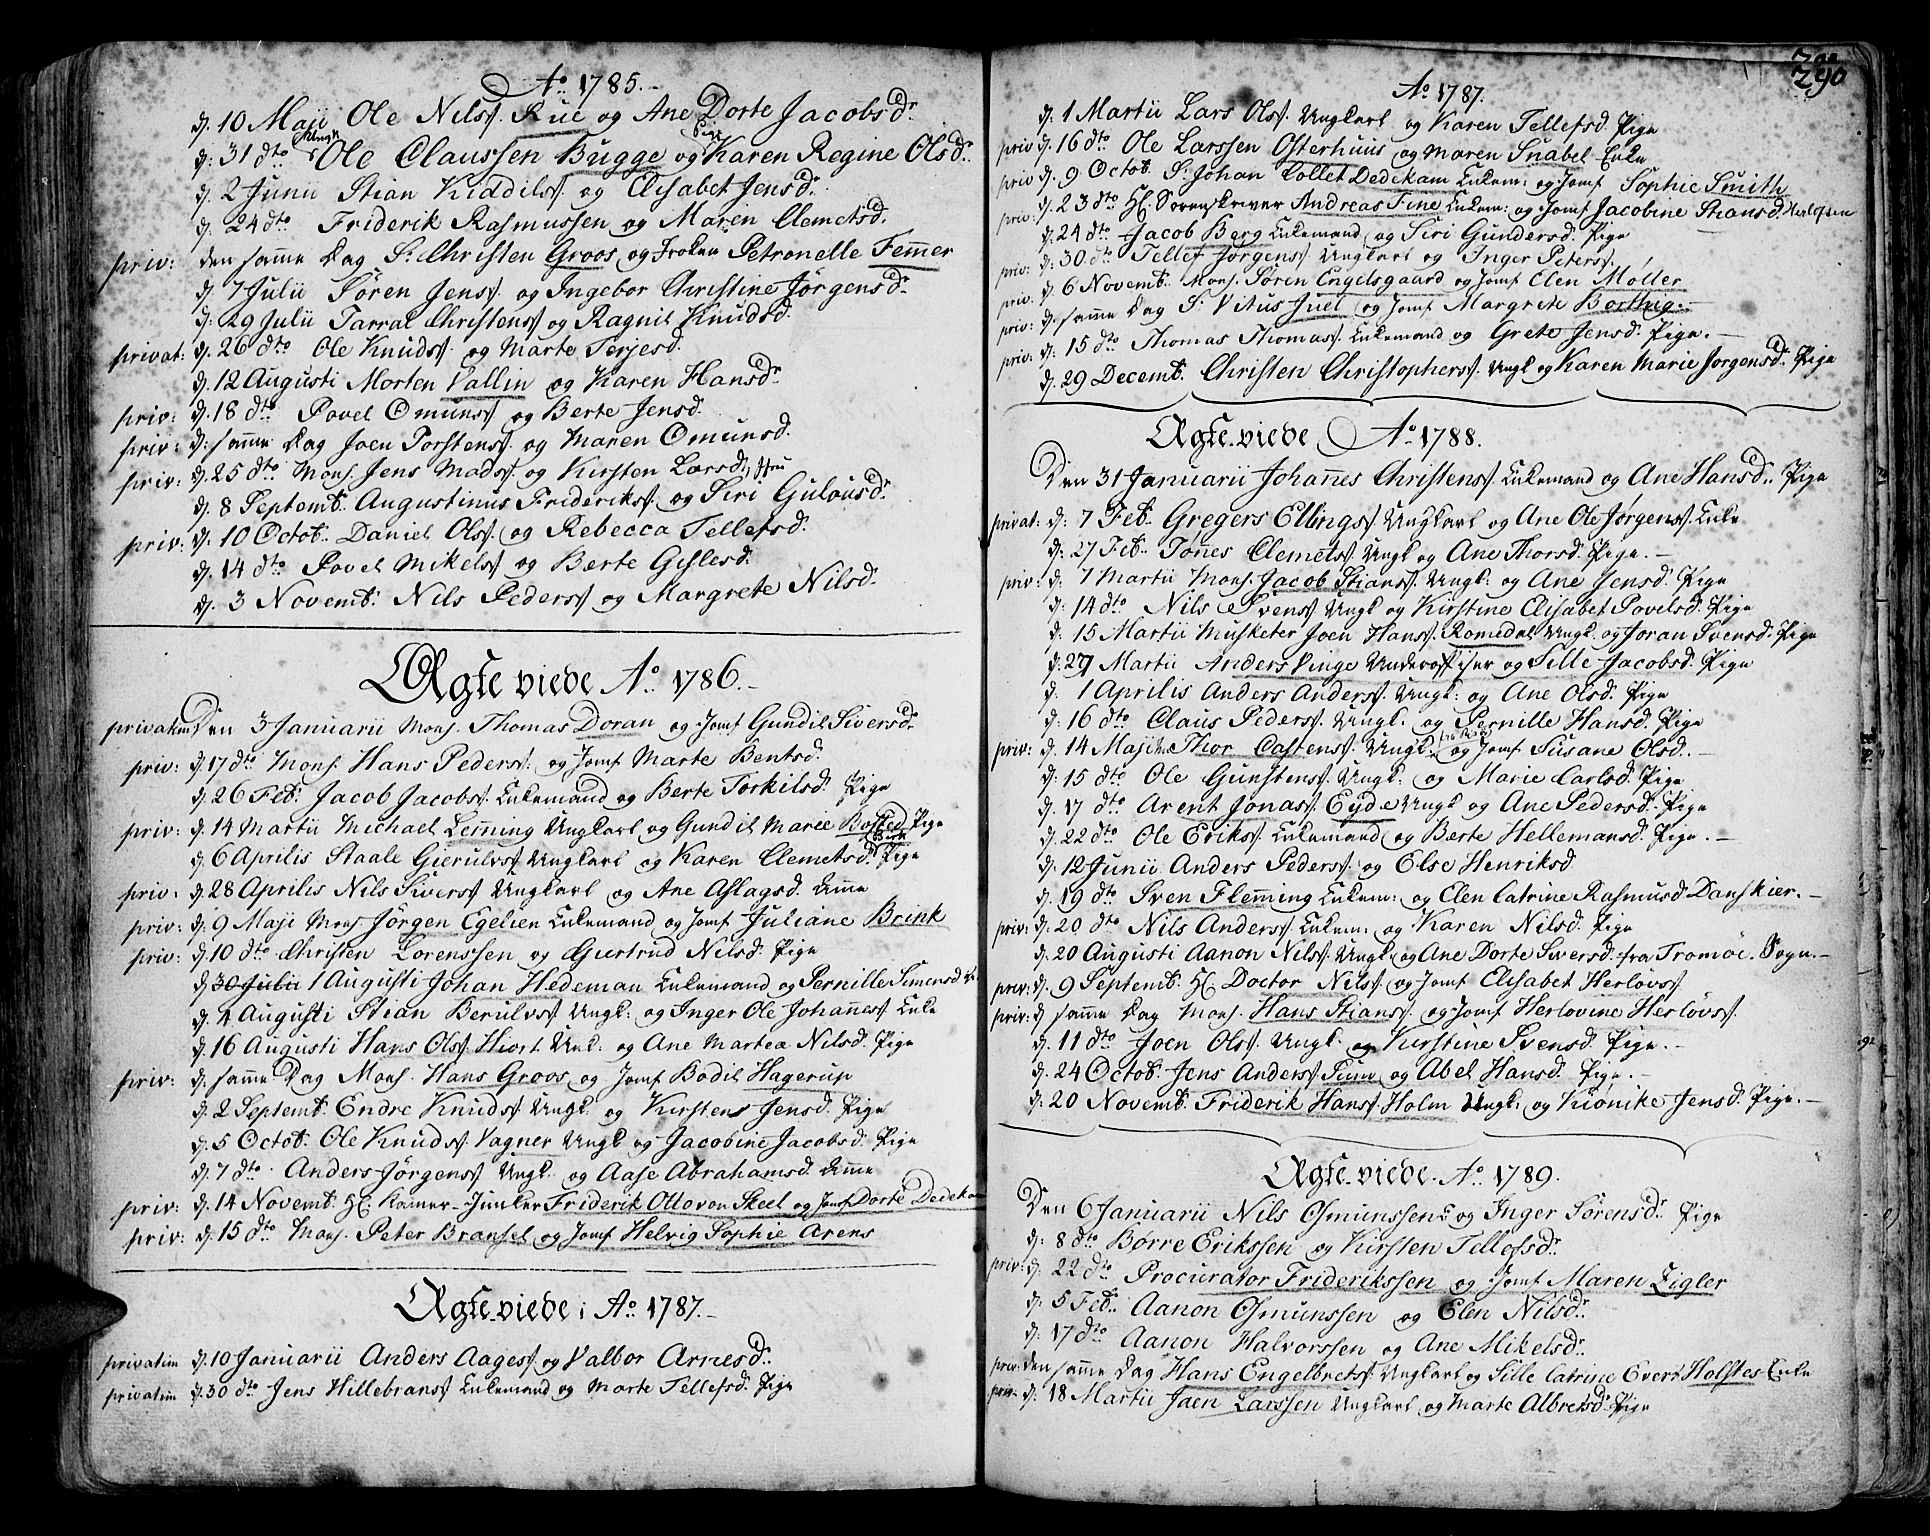 Ao. 1785.
d. 10 Maji Ole Nilss. Rue og Ane Dorte Jacobsdr.
d. 31 dto Ungk Ole Claussen Bugge og Pige Karen Regine Olsd.
d. 2 Junii Stian Kiddilss. og Elisabet Jensdr.
d. 24 dto Friderik Rasmussen og Maren Clemetsd.
priv: den samme Dag Sr. Christen Groos og Froken Petronelle Femmer
d. 7 Julii Sören Jenss. og Ingebor Christine Jörgensdr.
d. 29 Julii Tarral Christenss. og Ragnil Knudsd.
privat: d. 26 dto Ole Knudss. og Marte Terjesd.
d. 12 Augusti Morten Vallin og Karen Hansdr.
priv: d. 18 dto Povel Omunss. og Berte Jensd.
priv: d. samme Dag Joen Torstenss. og Maren Omunsd.
priv: d. 25 dto Mons. Jens Madss. og Kirsten Larsd.
d. 8 Septemb. Augustinus Frideriks. og Siri Gulousd.
priv: d. 10 Octob. Daniel Olss. og Rebecca Tellefsd.
d. 14 dto Povel Mikelss. og Berte Gislesd.
d. 3 Novemb. Nils Pederss. og Margrete Nilsd.
Ægte viede Ao. 1786.
privatim Den 3 Januarii Mons. Thomas Doran og Jomf Gundil Siversdr.
priv: d. 17 dto Mons. Hans Pederss. og Jomf Marte Bentsd.
d. 26 Feb. Jacob Jacobs. Enkemand og Berte Torkilsd. Pige
priv: d. 14 Martii Michael Lemming Ungkarl og Gundil Marie Bosted Pige
d. 6 Aprilis Staale Gierulvss. Ungkarl og Karen Clemetsd. Pige
priv: d. 28 Aprilis Nils Siverss. Ungkarl og Ane Aslagsd.
priv: d. 9 Maji Mons. Jörgen Egelien Enkemand og Jomf Juliane Brink
priv: d. 10 dto Christen Lorenssen og Giertrud Nilsd. Pige
d. 30 Julii 1 Augusti Johan Hedeman Enkemand og Pernille Simensd
d. 4 Augusti Stian Berulvss. Ungk: og Inger Ole Johanness. Enke
d. 16 Augusti Hans Olss. Hiort Unk. og Ane Martea Nilsd. Pige
priv: d. samme Dag Mons. Hans Groos og Jomf Bodil Hagerup
d. 2 Septemb. Endre Knudss. Ungk. og Kirsten Jensd. Pige
d. 5 Octob. Ole Knudss. Vagner Ungk og Jacobine Jacobsd. Pige
d. 7 dto Anders Jörgenss. Ungk. og Aase Abrahamsd.
priv: d. 14 Novemb. H. Kamer-Junker Friderik Otto von Skeel og Jomf Dorte Dedekam
priv: d. 15 dto Mons. Peter Bransel og Jomf Helvig Sophie Arens
Ægte viede i Ao. 1787.
privatim d. 10 Januarii Anders Aagess. og Valbor Arnesd.
privatim d. 30 dto Jens Hillebrans. Enkemand og Marte Tellefsd. Pige
290
Ao. 1787.
d. 1 Martii Lars Olss. Ungkarl og Karen Tellefsd. Pige
priv d. 16 dto Ole Larssen Osterhuus og Maren Snabel Enke
priv d. 9 Octob. Sr. Johan Collet Dedekam Enkem: og Jomf Sophie Smith
priv: d. 23 dto H. Sorenskriver Andreas Fine Enkem: og Jomf Jacobine Stiansd. Herlofsen
d. 24 dto Jacob Berg Enkemand og Siri Gundersd. Pige
priv: d. 30 dto Tellef Jörgenss. Ungkarl og Inger Peterss.
priv: d. 6 Novemb. Mons. Sören Engelsgaard og Jomf Elen Møller
priv: d. samme Dag Sr. Vitus Juel og Jomf Margrete Borthig
priv: d. 15 dto Thomas Thomass. Enkemand og Grete Jensd. Pige.
d. 29 Decemb. Christen Christophers. Ungk og Karen Marie Jorgensd. Pige
Ægte viede Ao. 1788.
Den 31 Januarii Johannes Christenss. Enkemand og Ane Hansd. Pige
privat: d: 7 Feb. Gregers Ellings. Ungkarl og Ane Ole Jørgenss. Enke
d: 27 Feb. Tønnes Clemets. Ungk og Ane Thorsd. Pige.
priv: d: 7 Martii Mons. Jacob Stians. Ungk: og Ane Jensd. Pige
d: 14 dto Nils Svens. Ungk og Kirstine Elisabet Povelsd. Pige
d: 15 Martii Musketer Joen Hans. Romedal Ungk. og Joran Svensd. Pige
d. 27 Martii Anders Vinge Underofficer og Sille Jacobsd. Pige
d. 1 Aprilis Anders Anderss. Ungk: og Ane Olsd. Pige
d. 16 dto Claus Pederss. Ungk: og Pernille Hansd. Pige
priv: d. 14 Maji Thor Castenss. Ungk. og Jomf Susane Olsd.
d. 15 dto Ole Gunstenss. Ungk: og Marie Carlsd. Pige
d. 17 dto Arent Jonass. Eyde Ungk og Ane Pedersd. Pige
d. 22 dto Ole Erikss. Enkemand og Berte Hellemansd. Pige.
d. 12 Junii Anders Pederss. og Else Henriksd
d. 19 dto Sven Flemming Enkem: og Elen Catrine Rasmusd Danskier.
priv: d. 20 dto Nils Anderss. Enkem: og Karen Nilsd. Pige
d. 20 Augusti Aanon Nilss. Ungk og Ane Dorte Siversd. fra Tromøe Sogn.
priv: d. 9 Septemb. H. Doctor Nilss. og Jomf Elisabet Herlövss.
priv: d. samme Dag Mons. Hans Stianss. og Jomf Herlovine Herlövss.
d. 11 dto Joen Olss. Ungk: og Kirstine Svensd. Pige.
d. 24 Octob. Jens Anderss. og Abel Hansd. Pige.
d. 20 Novemb. Friderik Hanss. Holm Ungk: og Kiönike Jensd. Pige.
Ægte viede Ao. 1789.
Den 6 Januarii Nils Osmunssen og Inger Sörensdr. Pige
d. 8 dto Børre Erikssen og Kirsten Tellefsdr.
priv: d. 22 dto Procurator Friderikssen og Jomf Maren Zigler
d. 5 Feb. Aanon Osmunssen og Elen Nilsdr.
d. 17 dto Aanon Halvorssen og Ane Mikelsdr.
priv: den samme Dag Hans Engelbretss. Ungkarl og Sille Catrine Evert Holstes Enke
priv: d. 18 Martii Jaen Larssen Ungkarl og Marte Albretsd. Pige